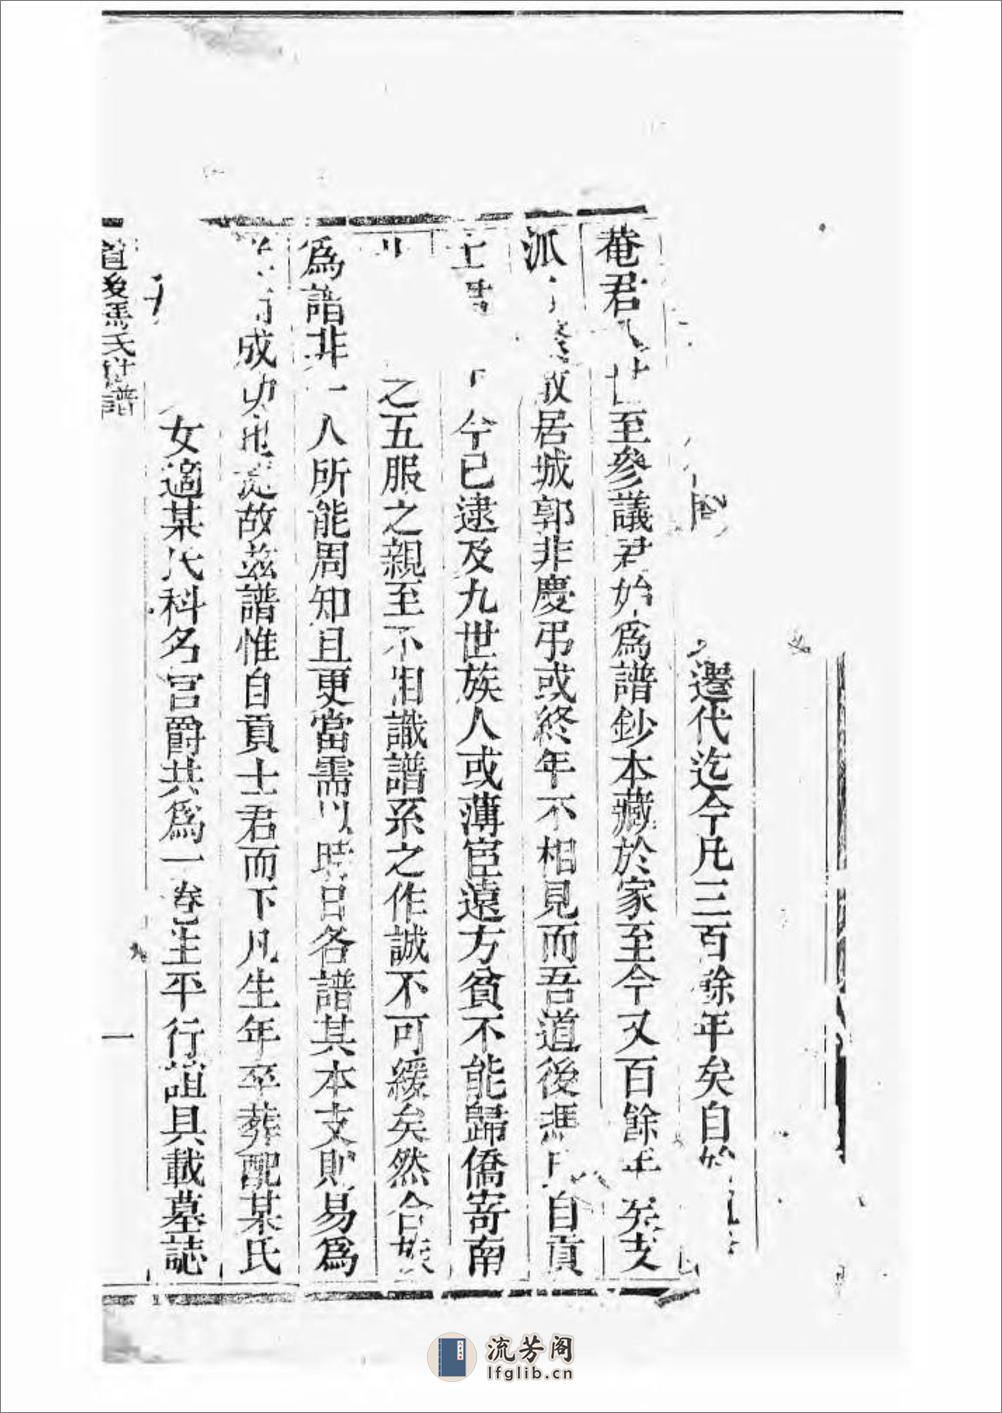 遷代迄今凡三百餘年矣自始
菴君 世至參議君始爲譜鈔本藏於家至今又百餘年矣支
派 繁散居城郭非慶弔或終年不相見而吾道後馮氏自貢
士君 今已逮及九世族人或薄宦遠方貧不能歸僑寄南
之五服之親至不相識譜系之作誠不可緩矣然合族
爲譜非一人所能周知且更當需以時日各譜其本支則易爲
成功也是故茲譜惟自貢士君而下凡生年卒葬配某氏
女適某氏科名官爵共爲一卷生平行誼具載墓誌
道後馮氏世譜
一
流芳阁
lfglib.cn